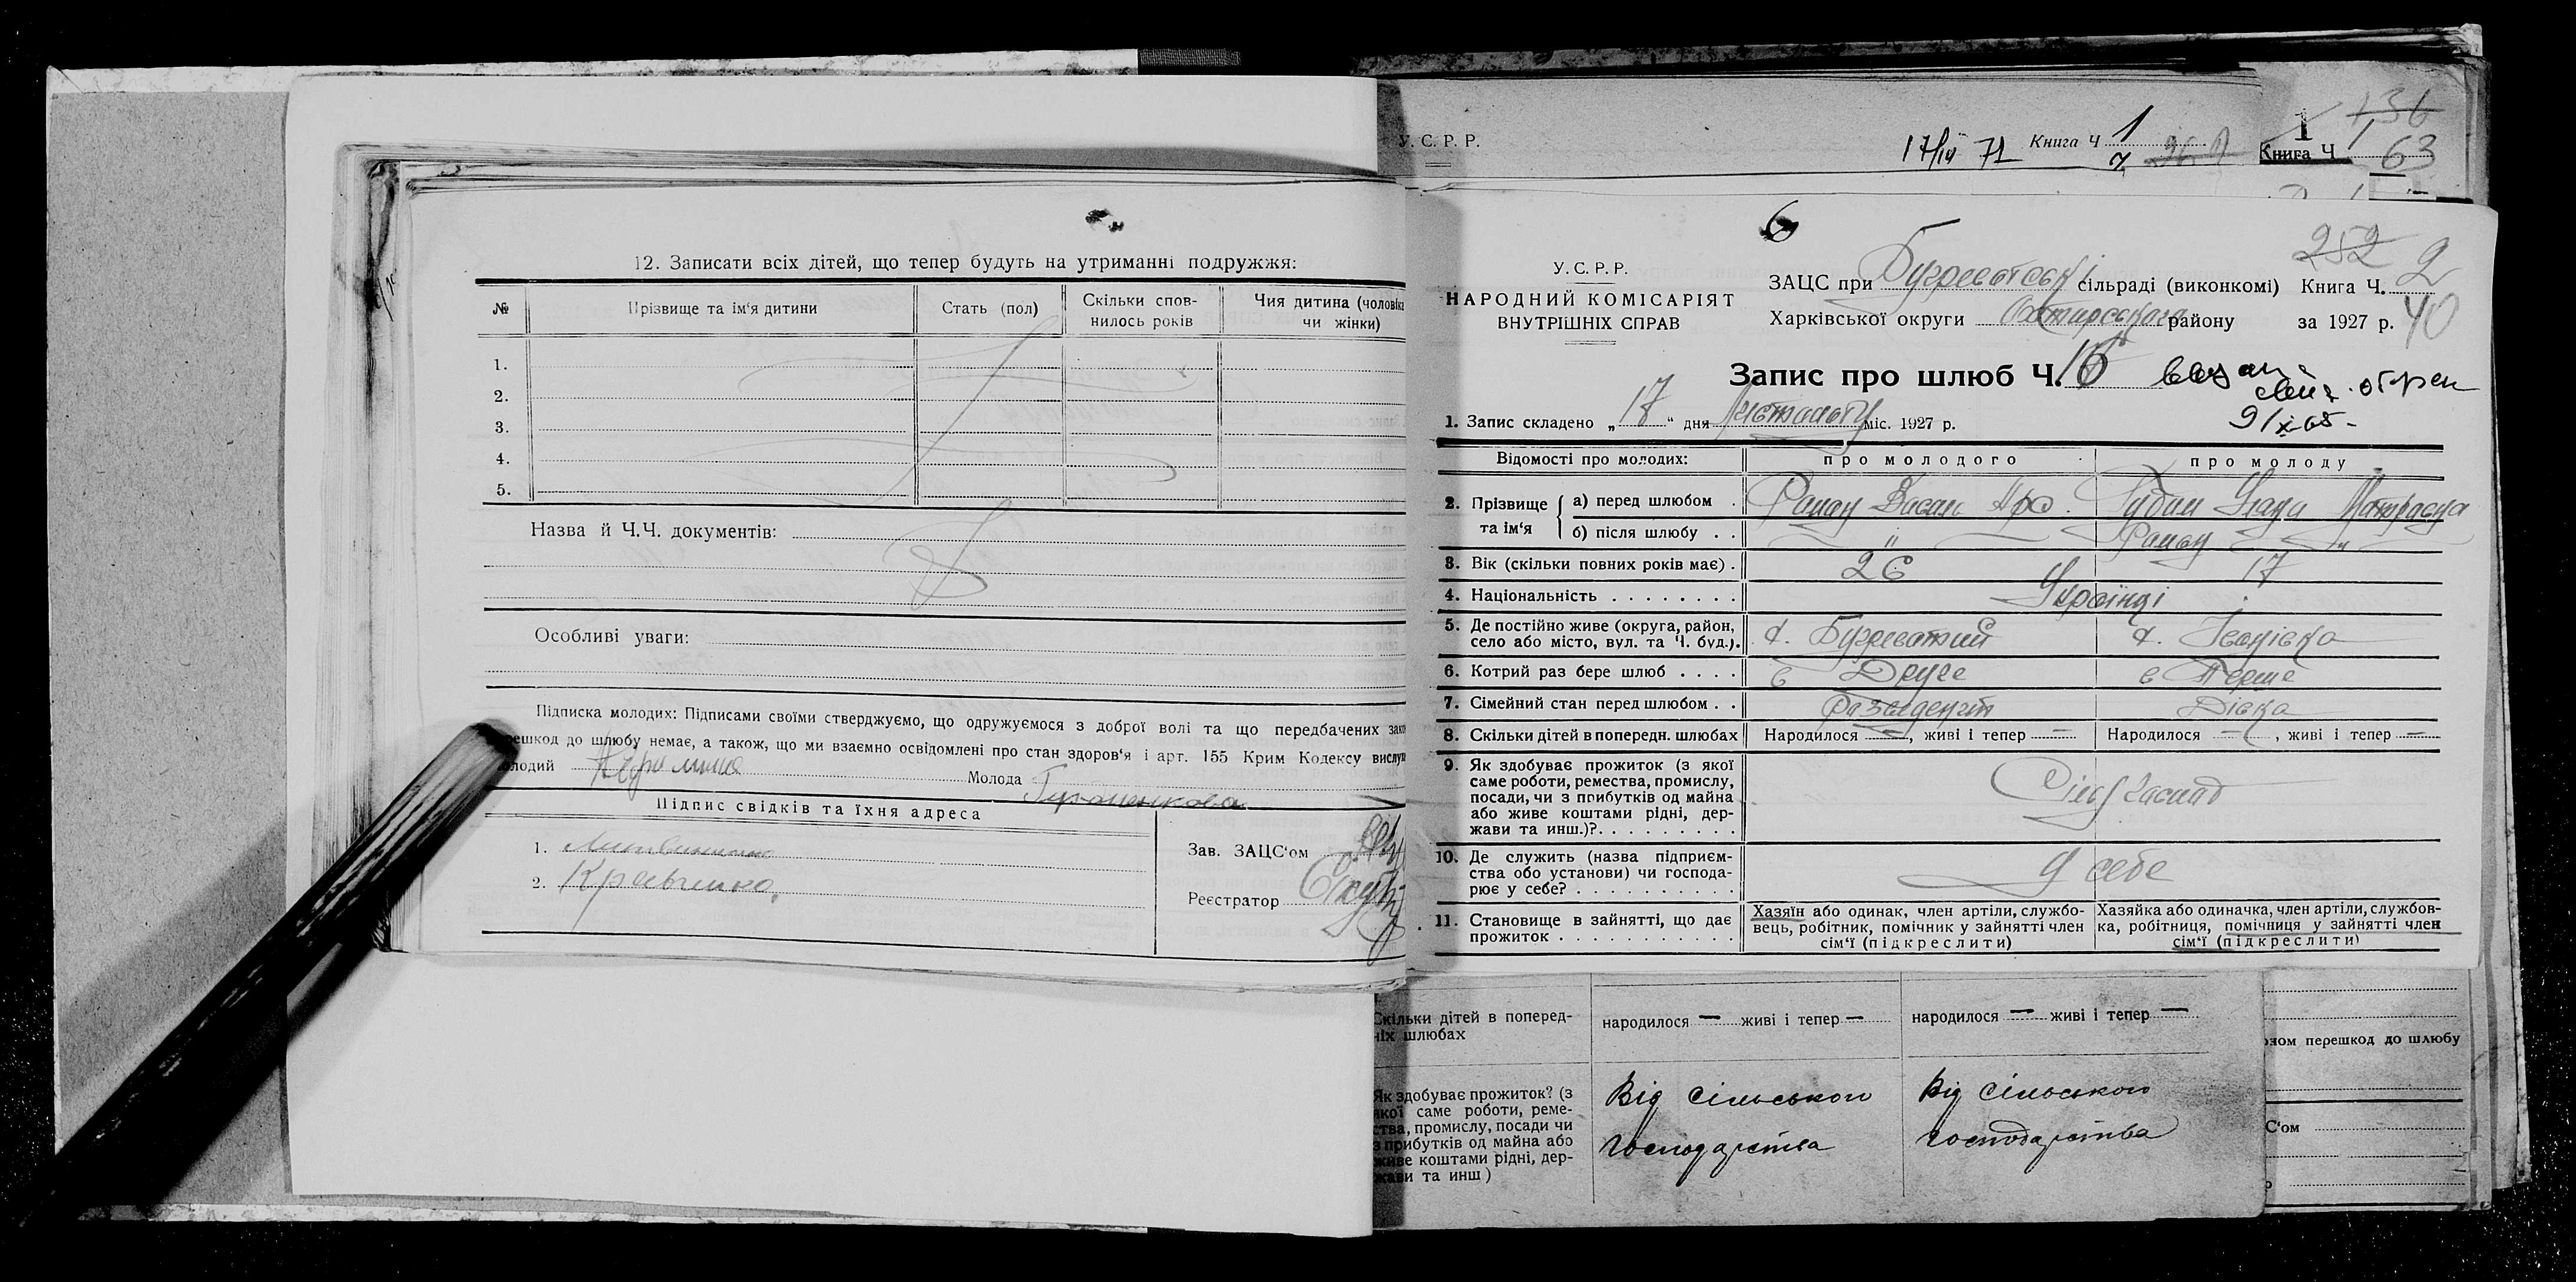 12. Записати всіх дітей, що тепер будуть на утриманні подружжя:
№ Прізвище та ім'я дитини Стать (пол) Скільки спов-нилось років Чия дитина (чоловіка чи жінки)
1.
2.
3.
4.
5.
Назва й Ч.Ч. документів:
Особливі уваги:
Підписка молодих: Підписами своїми стверджуємо, що одружуємося з доброї волі та що передбачених зак
решкод до шлюбу немає, а також, що ми взаємно освідомлені про стан здоров'я і арт. 155 Крим Кодексу вислу
олодий Молода
Підпис свідків та їхня адреса
1. Литвиненко
2. Кравченко
Зав. ЗАЦС'ом
Реєстратор
У. С. Р. Р.
17/IV 71 Книга Ч 1
1 136
Книга Ч 1
63
6
252 2
У. С. Р. Р.
НАРОДНИЙ КОМІСАРІЯТ
ВНУТРІШНІХ СПРАВ
ЗАЦС при Бугреватській сільраді (виконкомі) Книга Ч.
Харківської округи Охтирського району за 1927 р. 40
Запис про шлюб Ч. 16
9/X-65-
1. Запис складено „ 17 “ дня Листопаду міс. 1927 р.
Відомості про молодих: про молодого про молоду
2. Прізвище та ім'я
а) перед шлюбом .
б) після шлюбу . . "
3. Вік (скільки повних років має) . 26 17
4. Національність . . . . . . . . Українці
5. Де постійно живе (округа, район, село або місто, вул. та Ч. буд.). х. Бугреватий х. Іванівка
6. Котрий раз бере шлюб . . . . в Друге в Перше
7. Сімейний стан перед шлюбом . . Дівка
8. Скільки дітей в попередн. шлюбах Народилося —, живі і тепер — Народилося —, живі і тепер —
9. Як здобуває прожиток (з якої
саме роботи, ремества, промислу,
посади, чи з прибутків од майна
або живе коштами рідні, дер-
жави та инш.)?. . . . . . . . .
10. Де служить (назва підприєм-
ства обо установи) чи господа-
рює у себе? . . . . . . . . . . .
У себе
11. Становище в зайнятті, що дає
прожиток . . . . . . . . . . . .
Хазяїн або одинак, член артіли, службо-
вець, робітник, помічник у зайнятті член
сім'ї (підкреслити)
Хазяйка або одиначка, член артіли, службов-
ка, робітниця, помічниця у зайнятті член
сім'ї (підкреслити)
Скільки дітей в поперед-
ніх шлюбах
народилося — живі і тепер —
народилося — живі і тепер —
Як здобуває прожиток? (з
якої саме роботи, реме-
ства, промислу, посади чи
з прибутків од майна або
живе коштами рідні, дер-
жави та инш )
Від сільського
господарства
Від сільського
господарства
ном перешкод до шлюбу
С'ом